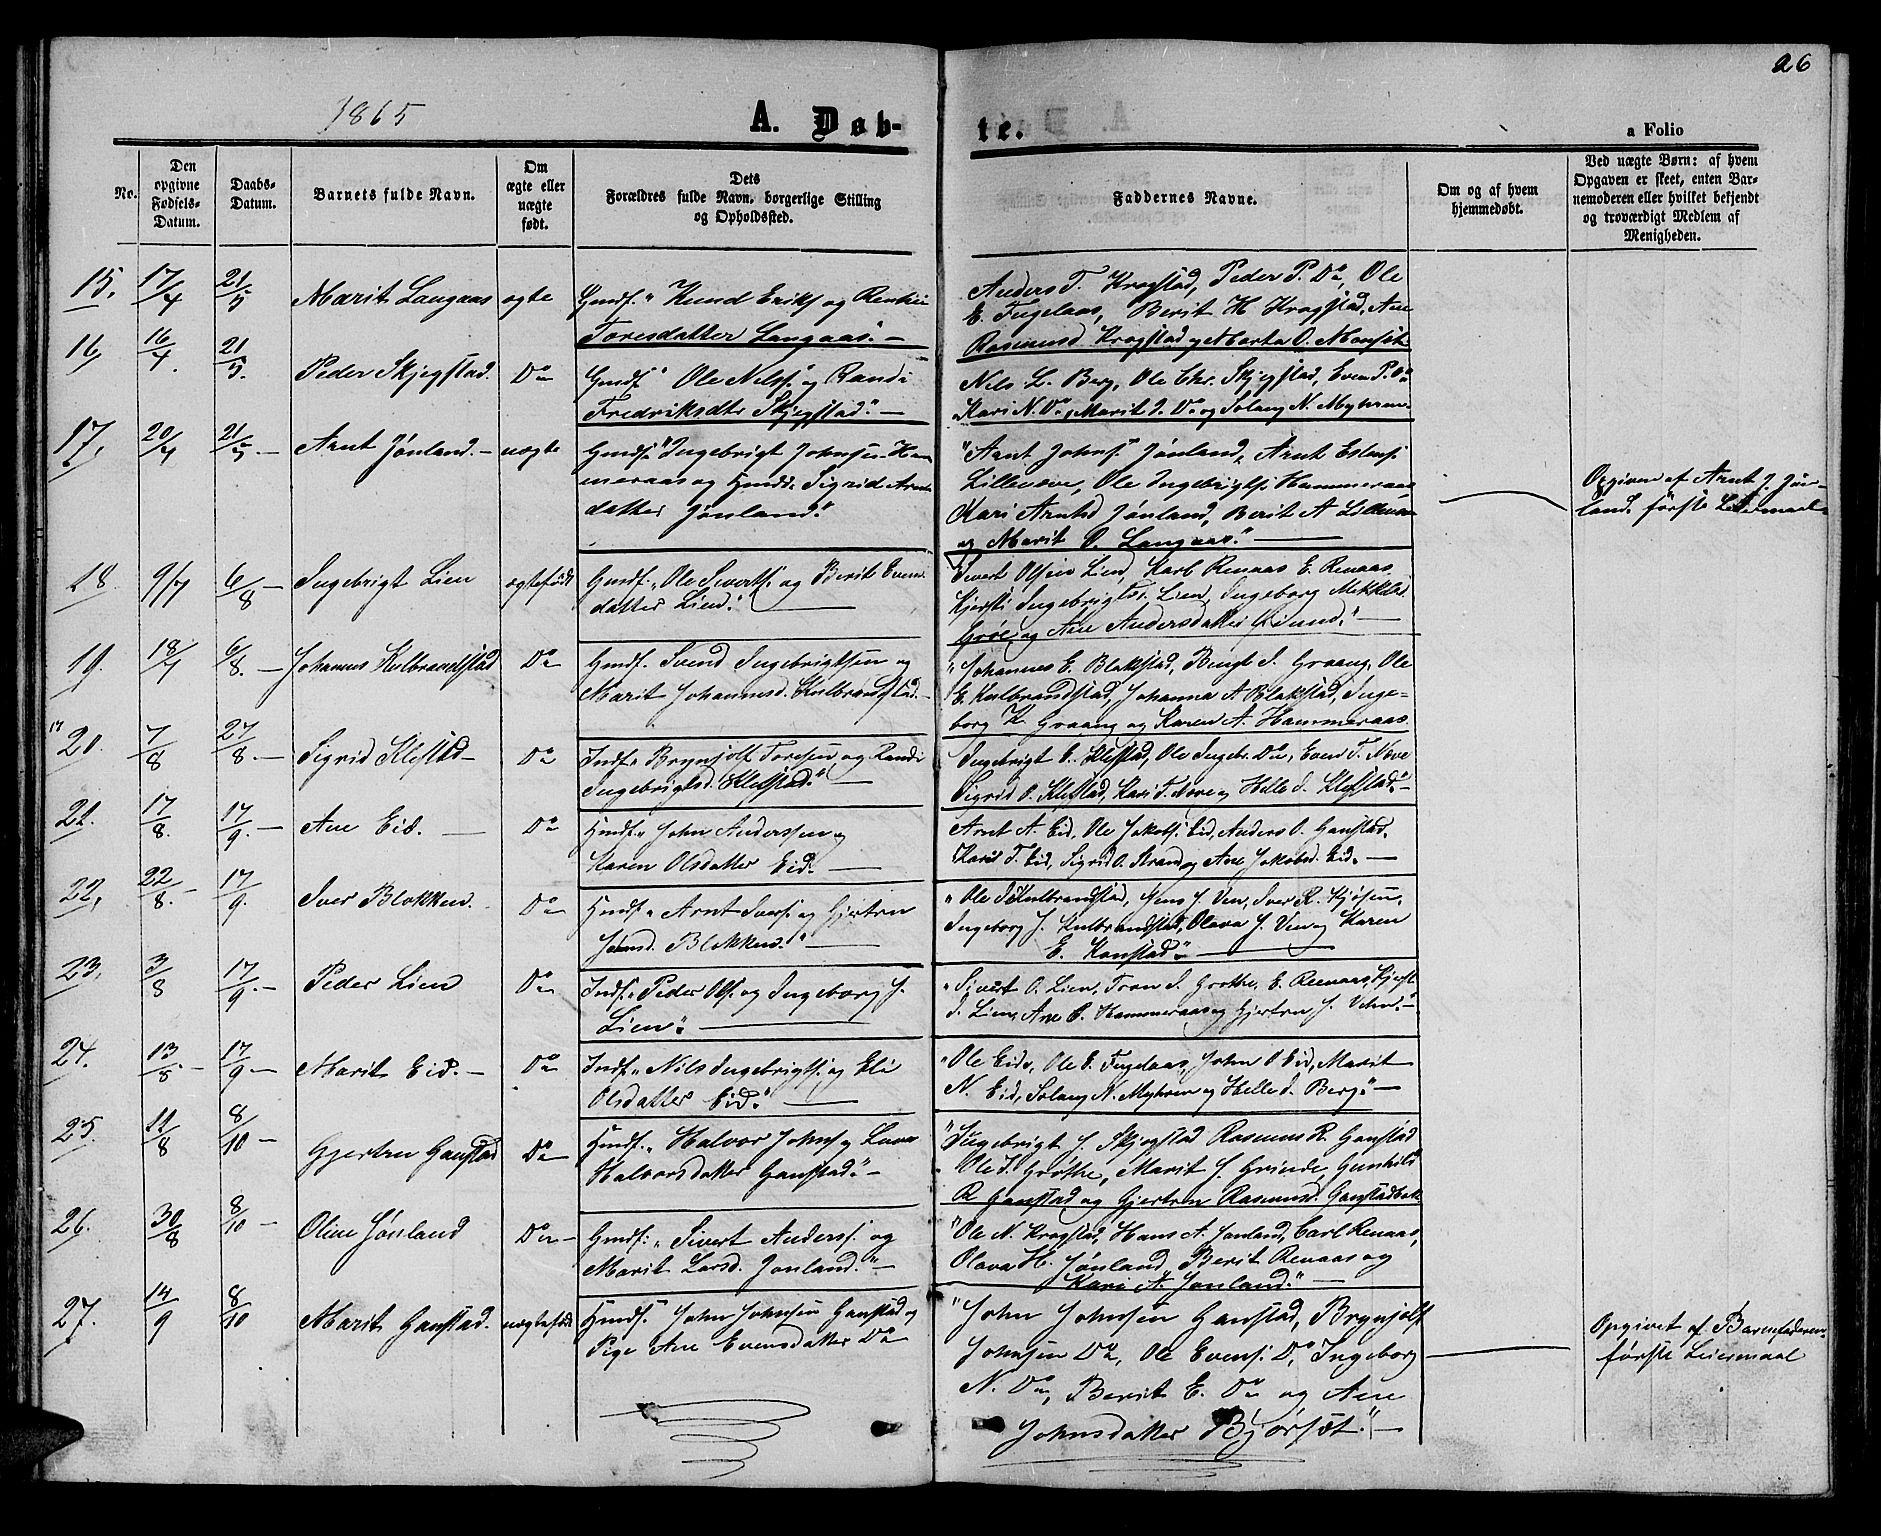 26
1865
A. Døb-
te.
a Folio
No.
Den
opgivne
Fødsels-
Datum.
Daabs-
Datum.
Barnets fulde Navn.
Om
ægte eller
uægte
født.
Dets
Forældres fulde Navn, borgerlige Stilling
og Opholdssted.
Faddernes Navne.
Om og af hvem
hjemmedøbt.
Ved uægte Børn: af hvem
Opgaven er skeet, enten Bar-
nemoderen eller hvilket bekjendt
og troværdigt Medlem af
Menigheden.
15. 17/4 21/5 Marit Langaas ægte Gmdf. Knud Eriks. og
Toresdatter Langaas.
Anders T. Krogstad, Peder P. Do, Ole
E. Fugelaas, Berit H. Krogstad, Ane
Rasmusd. Krogstad og Marta O.
16, 16/4. 21/5. Peder Skjegstad. Do Gmdf. Ole Nilss. og Randi
Fredriksdtr Skjegstad.
Nils L. Berg, Ole Chr. Skjegstad, Even P. Do
Kari N. Do, Marit J. Do og Solaug N. Myhren
17, 20/4 21/5 Arnt Jønland. uægte Gmdf. Ingebrigt Johnsen Ham-
meraas og Gmdd. Sigrid Arnts-
datter Jønland.
Arnt Johns. Jønland, Arnt Estens.
Lillevæve, Ole Ingebrigts. Hammeraas
Kari Arntsd. Jønland, Berit A.
og Marit O. Langaas.
Opgiven af Arnt J. Jøn-
land, første Leiermaal
18. 9/7 6/8 Ingebrigt Lien ægtefødt Gmdf. Ole Siverts. og Berit Evens-
datter Lien.
Sivert Olsen Lien, Karl Renaas E. Renaas,
Kjersti Ingebrigtsd. Lien, Ingeborg
Grøte og Ane Andersdatter
19. 18/7 6/8. Johannes Kulbrandstad Do Gmdf. Svend Ingebrigtsen og
Marit Johannesd. Kulbrandstad.
Johannes E. Blakstad, Bengt S. Graang, Ole
E. Kulbrandstad, Johanna A. Blakstad, Inge-
borg K. Graang og Karen A. Hammeraas.
20. 7/8 27/8. Sigrid Klefstad Do Indf. Brynjolf Toresen og Randi
Ingebrigtsd. Klefstad.
Ingebrigt O. Klefstad, Ole Ingebr. Do, Even T. Nove
Sigrid O. Klefstad, Kari T. Nove og Helle S. Klefstad.
21. 17/8. 17/9. Ane Eid. Do Hmdf. John Anderssen og
Karen Olsdatter Eid.
Arnt A. Eid, Ole Jakobs. Eid, Anders O. Ganstad,
Kari T. Eid, Sigrid O. Strand og Ane Jakobsd. Eid.
22, 22/8. 17/9. Iver Blokken. Do Hmdf. Arnt Ivers. og Gjertru
Blokken.
Ole S. Kulbrandstad, Jens J. Ven, Iver R. Kjøsen,
Ingeborg J. Kulbrandstad, Olava J. Ven og Karen
E. Kanstad.
23, 3/8 17/9. Peder Lien Do Indf. Peder Ols. og Ingeborg J.
Lien.
Sivert O. Lien, Tron S. Grøthe, E. Renaas, Kjerst
S. Lien, Ane O. Hammeraas og Gjertru J.
24. 13/8. 17/9 Marit Eid. Do Indf. Nils Ingebrigts. og Eli
Olsdatter Eid.
Ole Eide, Ole E. Fugelaas, John O. Eid, Marit
N. Eid, Solaug N. Myhren og Helle S. Berg.
25. 11/8 8/10 Gjertru Ganstad Do Hmdf. Halvor Johns. og
Halvorsdatter Ganstad.
Ingebrigt J. Skjegstad Rasmus R. Ganstad
Ole I. Grøthe, Marit J. Grinde, Gunhild
R. Ganstad og Gjertru Rasmusd. Ganstadbak.
26. 30/8 8/10 Oline Jønland Do Gmdf. Sivert Anderss. og
Marit Larsd. Jønland.
Ole N. Krogstad, Hans A. Jønland, Carl Renaas,
Olava H. Jønland, Berit Renaas og
Kari A. Jønland.
27. 14/9 8/10 Marit Ganstad. uægtefødt Hmdf. John Johnsen Ganstad og
Pige Ane Evensdatter Do
John Johnsen Ganstad, Brynjolf
Johnsen Do, Ole Evens. Do, Ingeborg
N. Do, Berit E. Do og Ane
Johnsdatter Bjørset.
Opgivet af Barnefaderen,
første Leiermaal